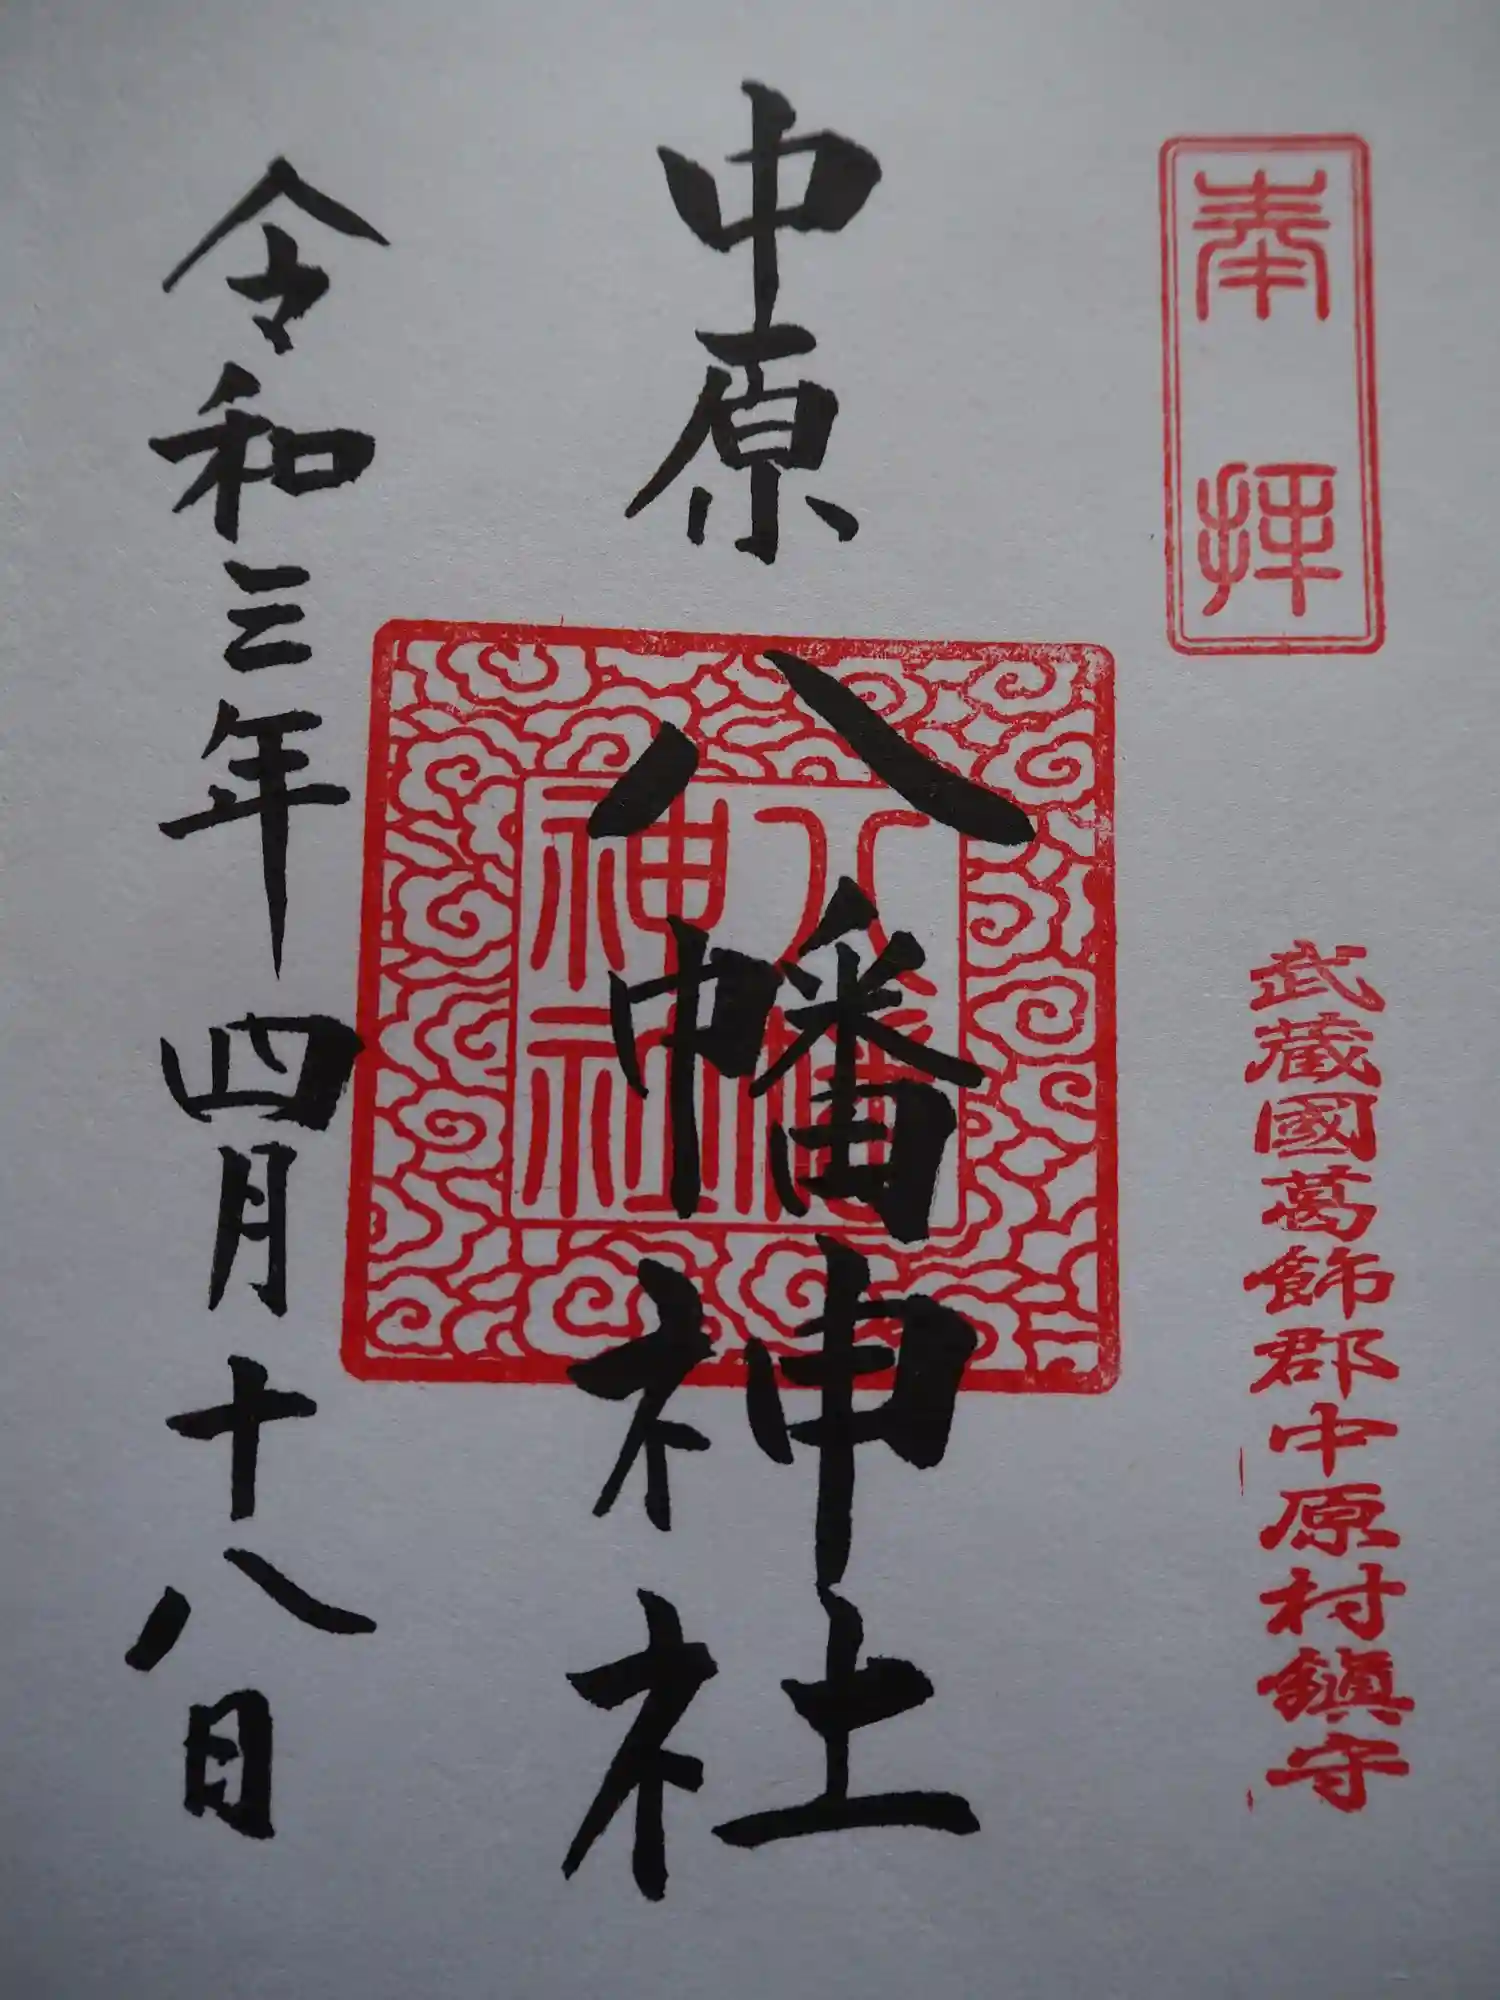 奉拝
武蔵國葛飾郡中原村鎮守
中原八幡神社
八幡
神社
令和三年四月十八日